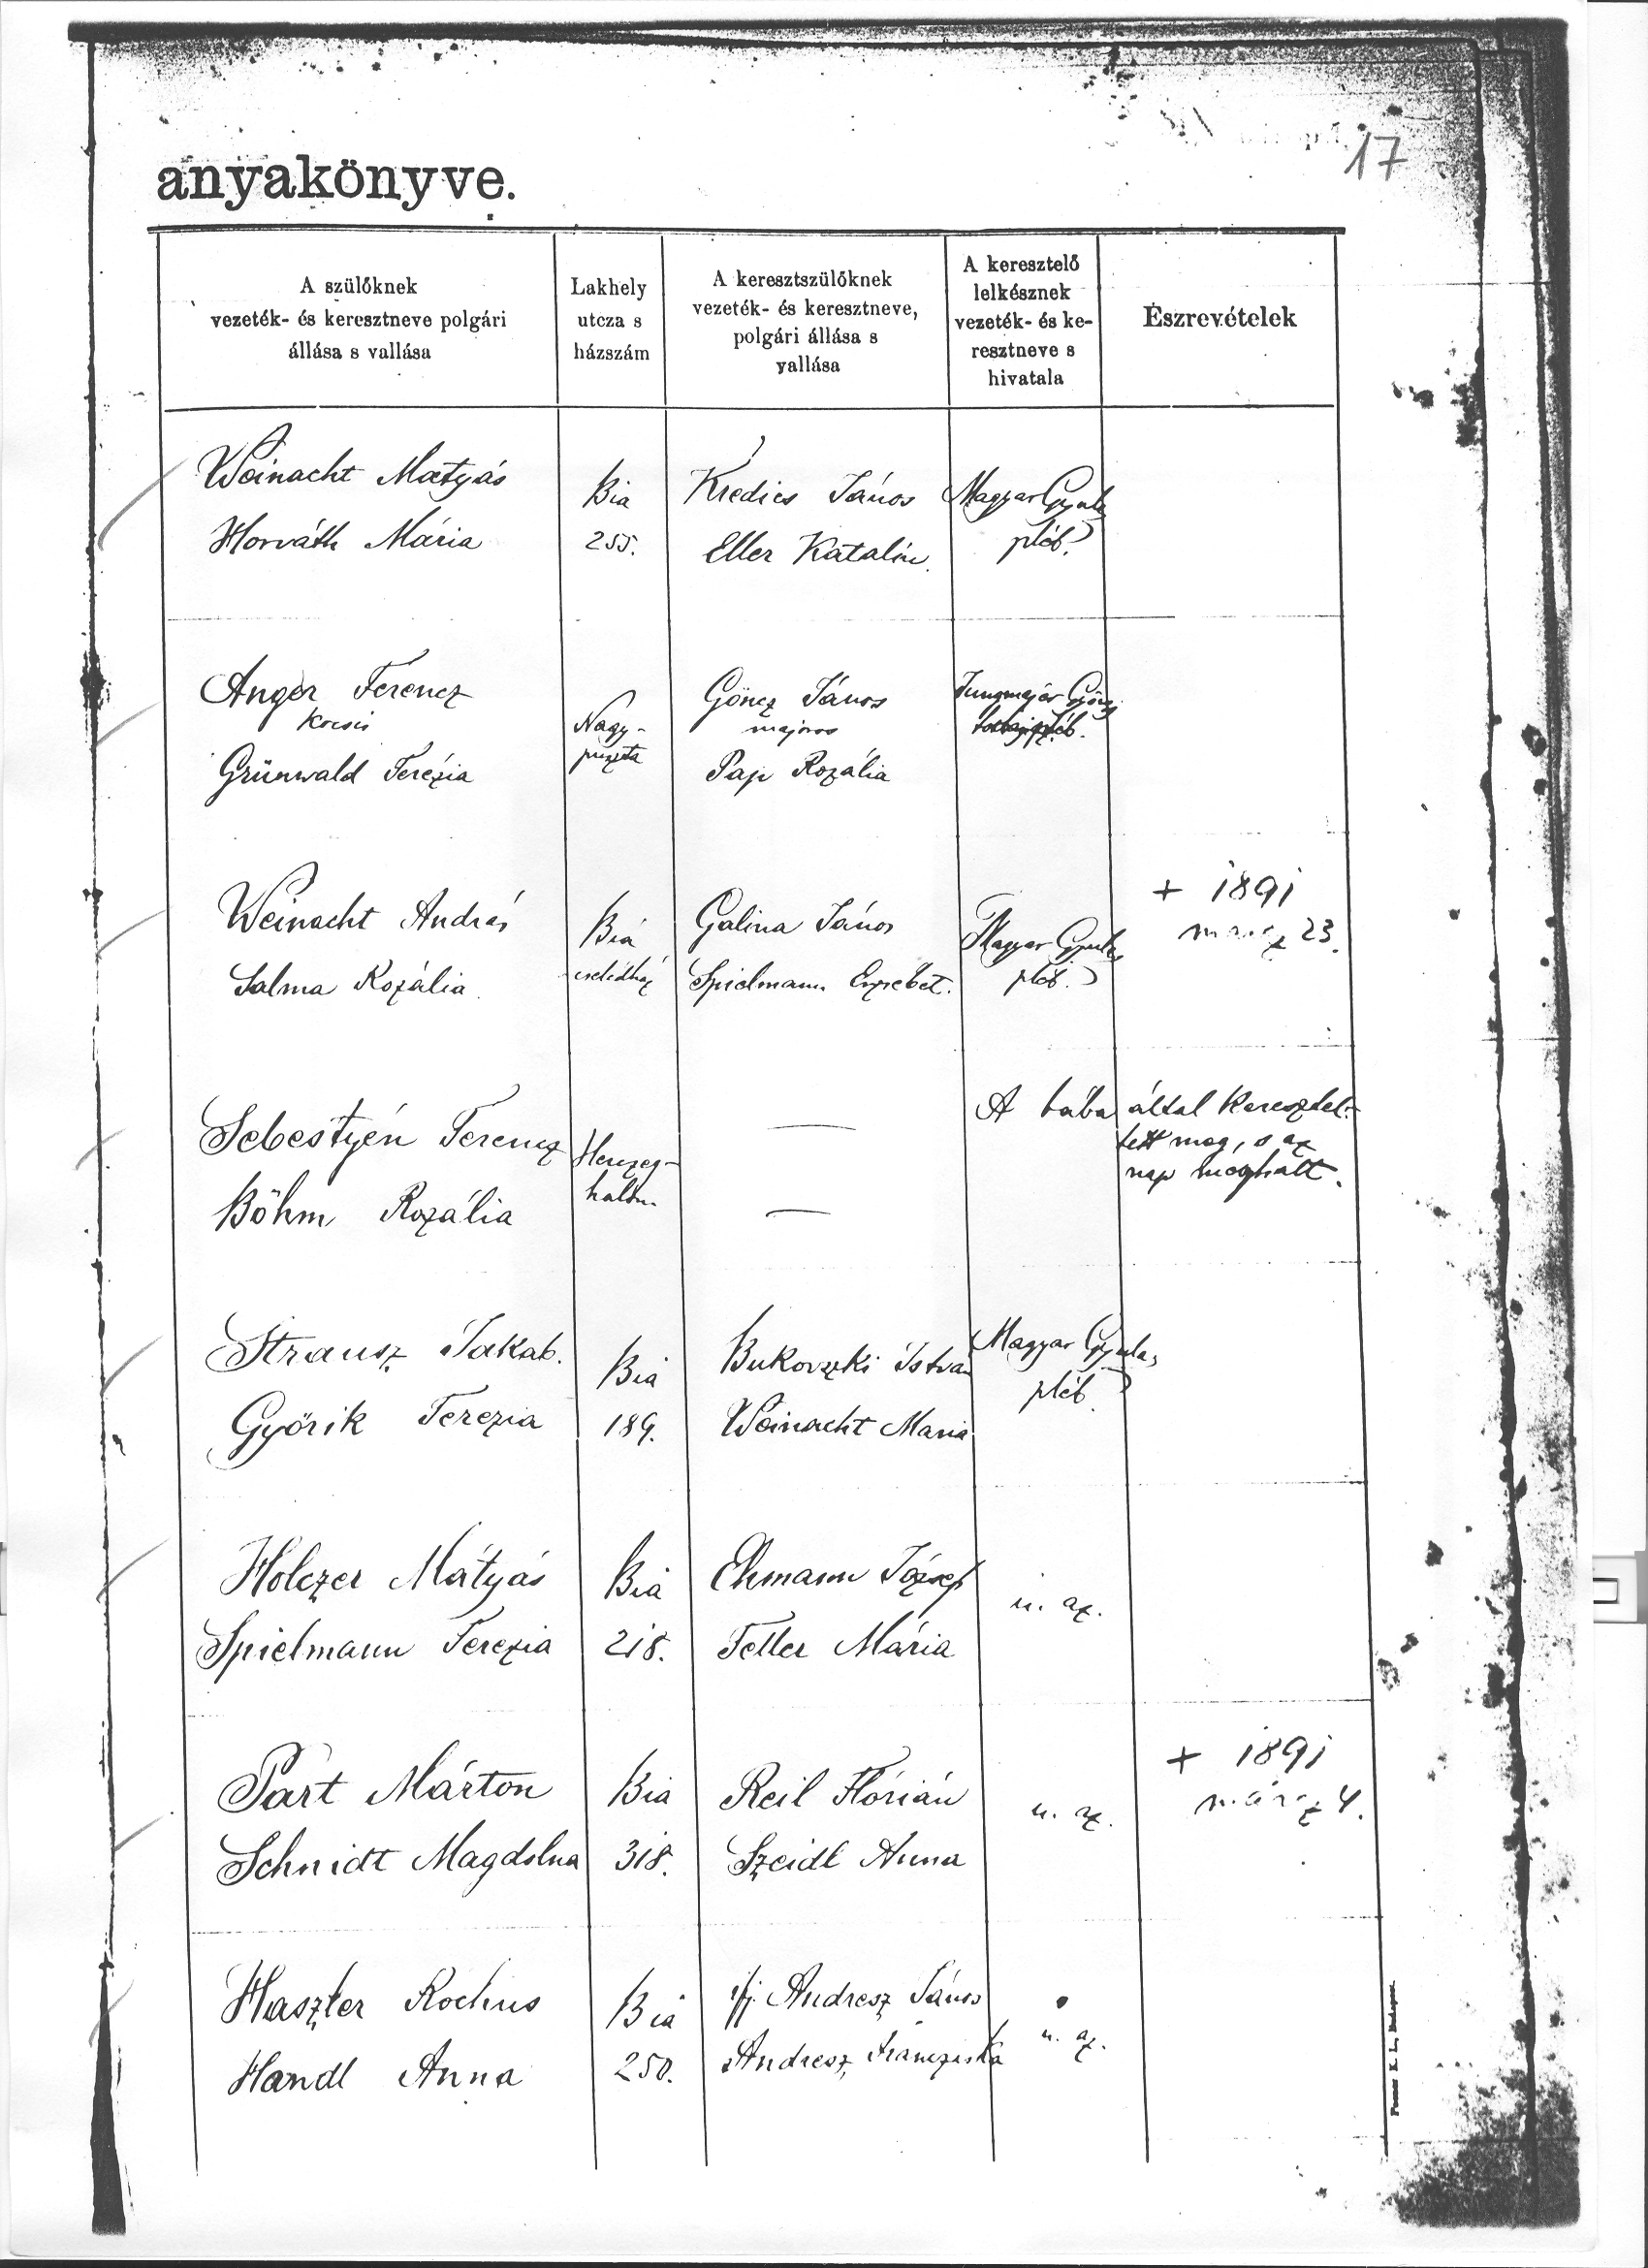 17
anyakönyve.
A szülőknek
vezeték- és keresztneve polgári
állása s vallása
Lakhely
utcza s
házszám
A keresztszülőknek
vezeték- és keresztneve,
polgári állása s
vallása
A keresztelő
lelkésznek
vezeték- és ke-
resztneve s
hivatala
Észrevételek
Weinacht Mátyás
Horváth Mária
Bia
255.
Kredics János
Eller Katalin.
Magyar Gyula
pléb.
Anger Ferencz
kocsis
Grünwald Terézia
Nagy-
puszta
Göncz János
majoros
Pap Rozália
Jungmajer György
pléb.
Weinacht András
Salma Rozália
Bia
cselédház
Galina János
Spielmann Erzsébet.
Magyar Gyula
pléb.
+ 1891
márcz 23.
Sebestyén Ferencz
Böhm Rozália
Herczeg-
halom
—
—
A bába által keresztel-
tett meg, s az
nap meghalt.
Strausz Jakab.
Győrik Terezia
Bia
189.
Bukovszki István
Weinacht Maria
Magyar Gyula,
pléb.
Holczer Mátyás
Spielmann Terezia
Bia
218.
Ehmann József
Feller Mária
u. az.
Part Márton
Schmidt Magdolna
Bia
318.
Reil Flórián
Szeidl Anna
u. az.
+ 1891
márcz 4.
Haszler Rochus
Handl Anna
Bia
250.
ifj. Andresz János
Andresz Francziska
u. az.